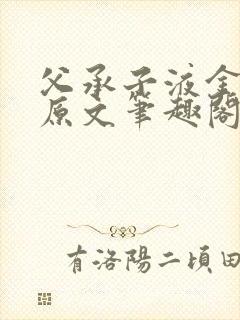 父承子液全
原文笔趣阁
有洛陽二頃田